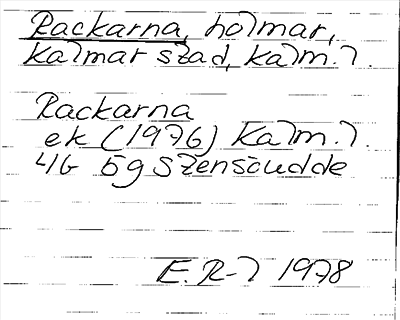 Rackarna, holmar,
Kalmar stad, Kalm. l.
Rackarna
ek (1976) Kalm. l.
4G 5g Stensöudde
E. R-l 1978